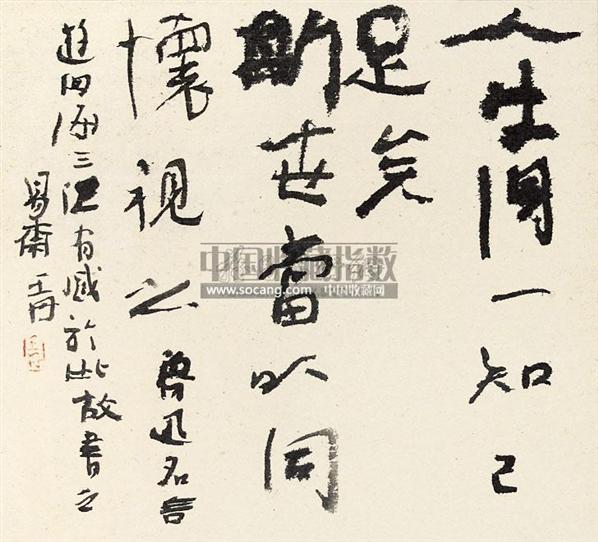 人生得一知己
足矣
斯世当以同
怀视之 鲁迅名言
游四海三江有感於此故书之
易斋
中国收藏指数
www.socang.com 中国收藏网